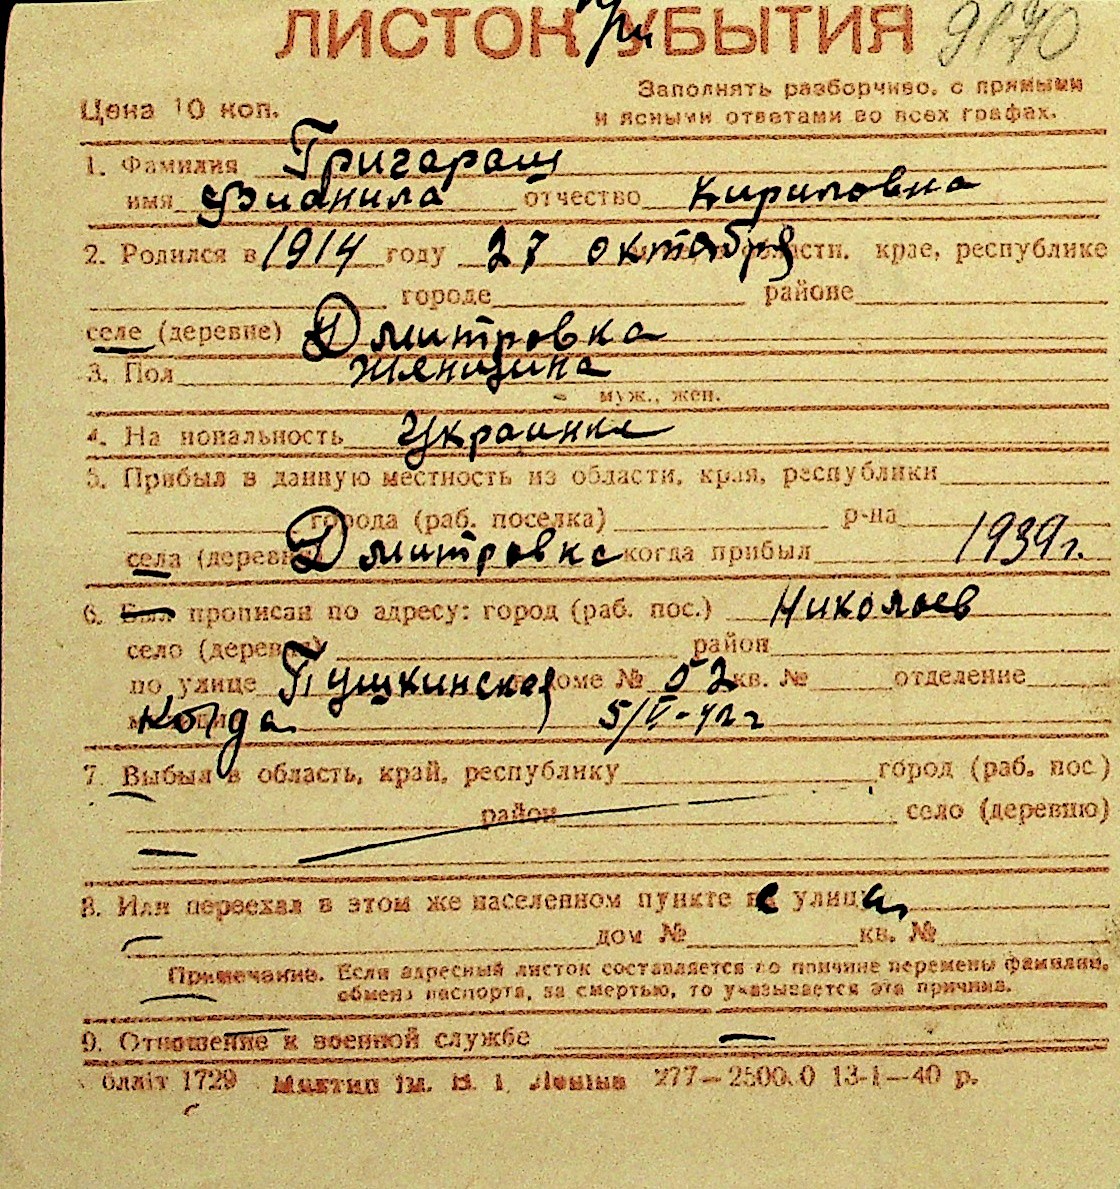 ЛИСТОК УБЫТИЯ 9170
Цена 10 коп.
Заполнять разборчиво, с прямыми
и ясными ответами во всех графах.
1. Фамилия Григаращ
имя отчество Кириловна
2. Родился в 1914 году 27 октября области, крае, республике
городе районе
селе (деревне) Дмитровка
3. Пол Женщина
муж., жен.
4. На нопальность Украинка
5. Прибыл в данную местность из области, края, республики
города (раб. поселка) р-на
села (деревни) Дмитровка когда прибыл 1939г.
6. Был прописан по адресу: город (раб. пос.) Николаев
село (деревня) район
по улице Пушкинская доме № 52 кв. № отделение
Когда 5/V-42г
7. Выбыл в область, край, республику город (раб. пос.)
район село (деревню)
8. Или переехал в этом же населенном пункте не улица
дом № кв. №
Примечание. Если адресный листок составляется по причине перемены фамилии,
обмена паспорта, за смертью, то указывается эта причина.
9. Отношение к военной службе —
облліт 1729 ім. В. І. Леніна 277—2500.0 13-1—40 р.